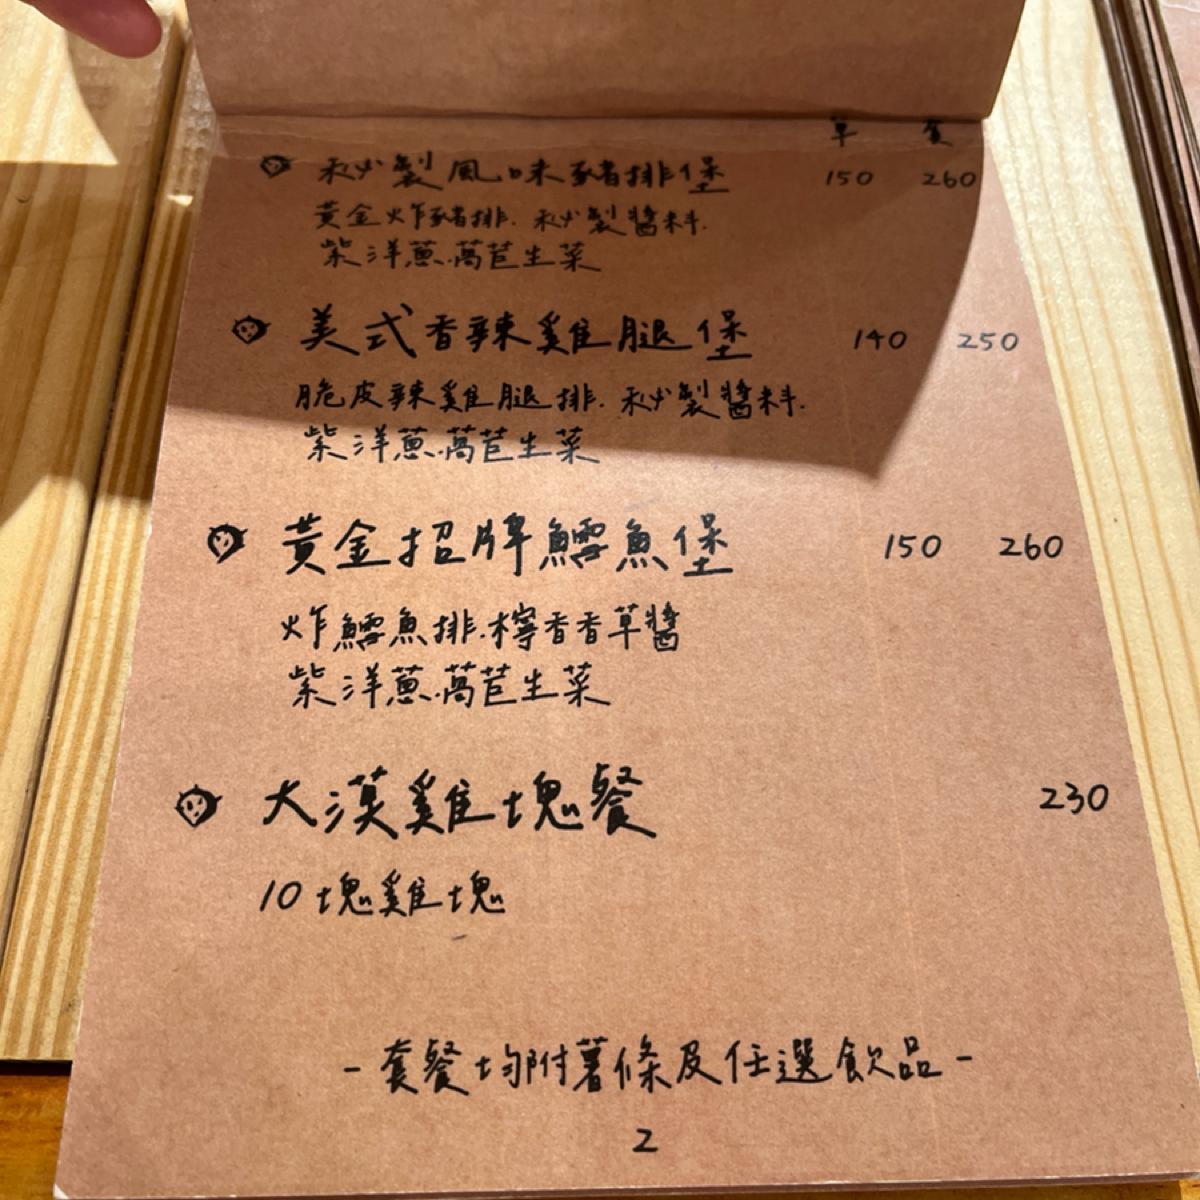 單 套
秘製風味豬排堡 150 260
黃金炸豬排.秘製醬料.
紫洋蔥.萵苣生菜
美式香辣雞腿堡 140 250
脆皮辣雞腿排.秘製醬料.
紫洋蔥.萵苣生菜
黃金招牌鱈魚堡 150 260
炸鱈魚排.檸香香草醬
紫洋蔥.萵苣生菜
大漠雞塊餐 230
10塊雞塊
-套餐均附薯條及任選飲品-
2